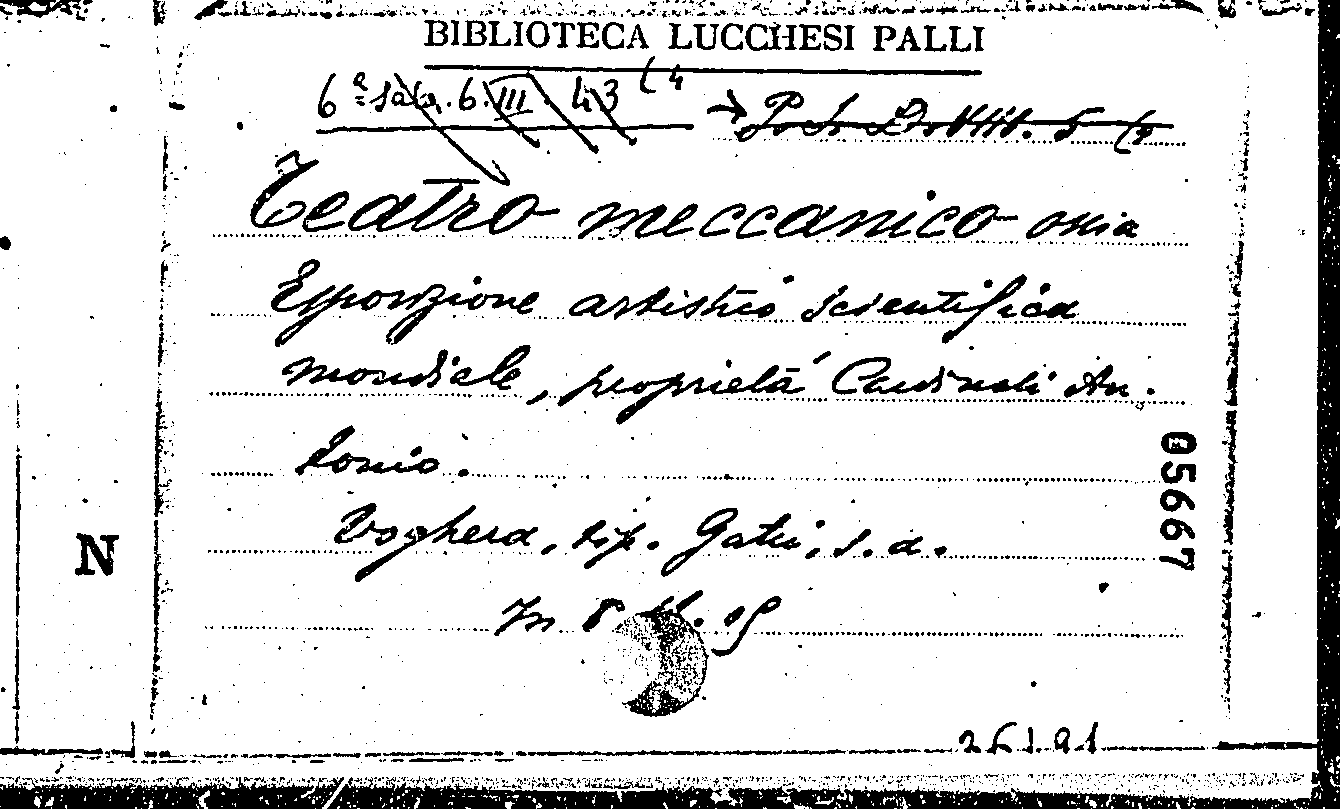 BIBLIOTECA LUCCHESI PALLI
6ª Sala. 6. III. 43 (4
Teatro meccanico ossia
Esposizione artistico scientifica
mondiale, proprietà Cardinali An.
tonio.
Voghera, tip. Gatti, s. a.
In 8
05667
N